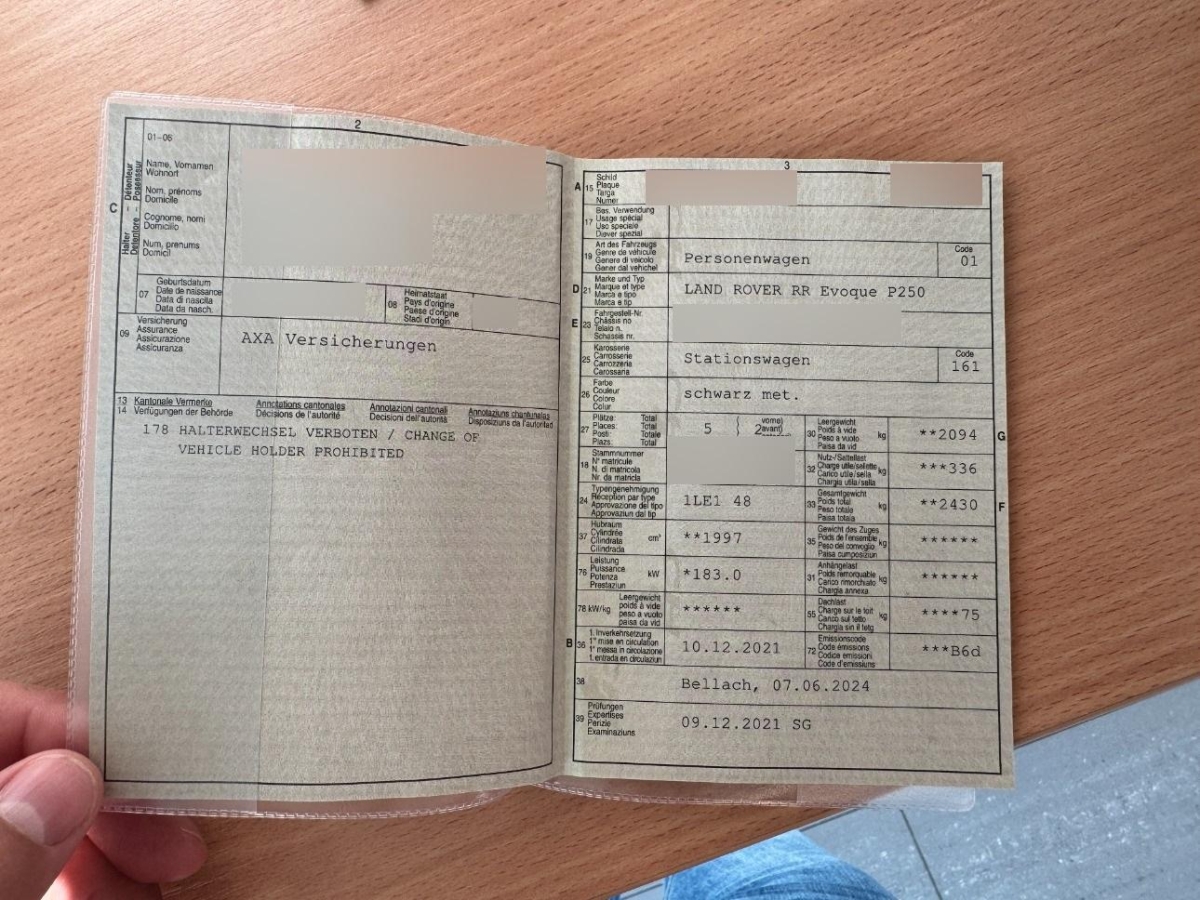 2
01-06
C
Halter - Détenteur
Detentore - Possessur
Name, Vornamen
Wohnort
Nom, prénoms
Domicile
Cognome, nomi
Domicilio
Num, prenums
Domicil
07
Geburtsdatum
Date de naissance
Data di nascita
Data da nasch.
08
Heimatstaat
Pays d'origine
Paese d'origine
Stadi d'origin
09
Versicherung
Assurance
Assicurazione
Assicuranza
AXA Versicherungen
13 Kantonale Vermerke Annotations cantonales Annotazioni cantonali Annotaziuns chantunalas
14 Verfügungen der Behörde Décisions de l'autorité Decisioni dell'autorità Disposiziuns da l'autoritad
178 HALTERWECHSEL VERBOTEN / CHANGE OF
VEHICLE HOLDER PROHIBITED
3
A 15
Schild
Plaque
Targa
Numer
17
Bes. Verwendung
Usage spécial
Uso speciale
Diever spezial
19
Art des Fahrzeugs
Genre de véhicule
Genere di veicolo
Gener dal vehichel
Personenwagen
Code
01
D 21
Marke und Typ
Marque et type
Marca e tipo
Marca e tip
LAND ROVER RR Evoque P250
E 23
Fahrgestell-Nr.
Châssis no
Telaio n.
Schassis nr.
25
Karosserie
Carrosserie
Carrozzeria
Carossaria
Stationswagen
Code
161
26
Farbe
Couleur
Colore
Colur
schwarz met.
27
Plätze Total
Places: Total
Posti: Totale
Plazs: Total
5
2
vorne
avant
30
Leergewicht
Poids à vide
Peso a vuoto
Paisa da vid
kg
**2094
G
18
Stammnummer
N° matricule
N. di matricola
Nr. da matricla
32
Nutz-/Sattellast
Charge utile/sellette
Carico utile/sella
Chargia utila/sella
kg
***336
24
Typengenehmigung
Réception par type
Approvazione del tipo
Approvaziun dal tip
1LE1 48
33
Gesamtgewicht
Poids total
Peso totale
Paisa totala
kg
**2430
F
37
Hubraum
Cylindrée
Cilindrata
Cilindrada
cm³
**1997
35
Gewicht des Zuges
Poids de l'ensemble
Peso del convoglio
Paisa cumposiziun
kg
******
76
Leistung
Puissance
Potenza
Prestaziun
kW
*183.0
31
Anhängelast
Poids remorquable
Carico rimorchiato
Chargia annexa
kg
******
78 kW/kg
Leergewicht
poids à vide
peso a vuoto
paisa da vid
******
55
Dachlast
Charge sur le toit
Carico sul tetto
Chargia sin il tetg
kg
****75
B 36
1. Inverkehrsetzung
1re mise en circulation
1a messa in circolazione
1. entrada en circulaziun
10.12.2021
72
Emissionscode
Code émissions
Codice emissioni
Code d'emissiuns
***B6d
38
Bellach, 07.06.2024
39
Prüfungen
Expertises
Perizie
Examinaziuns
09.12.2021 SG